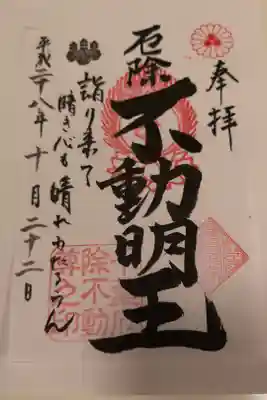 奉拝
厄除
不動明王
詣り来て
暗き心も晴れわたるらん
平成二十八年十月二十二日
除不動
尊之印